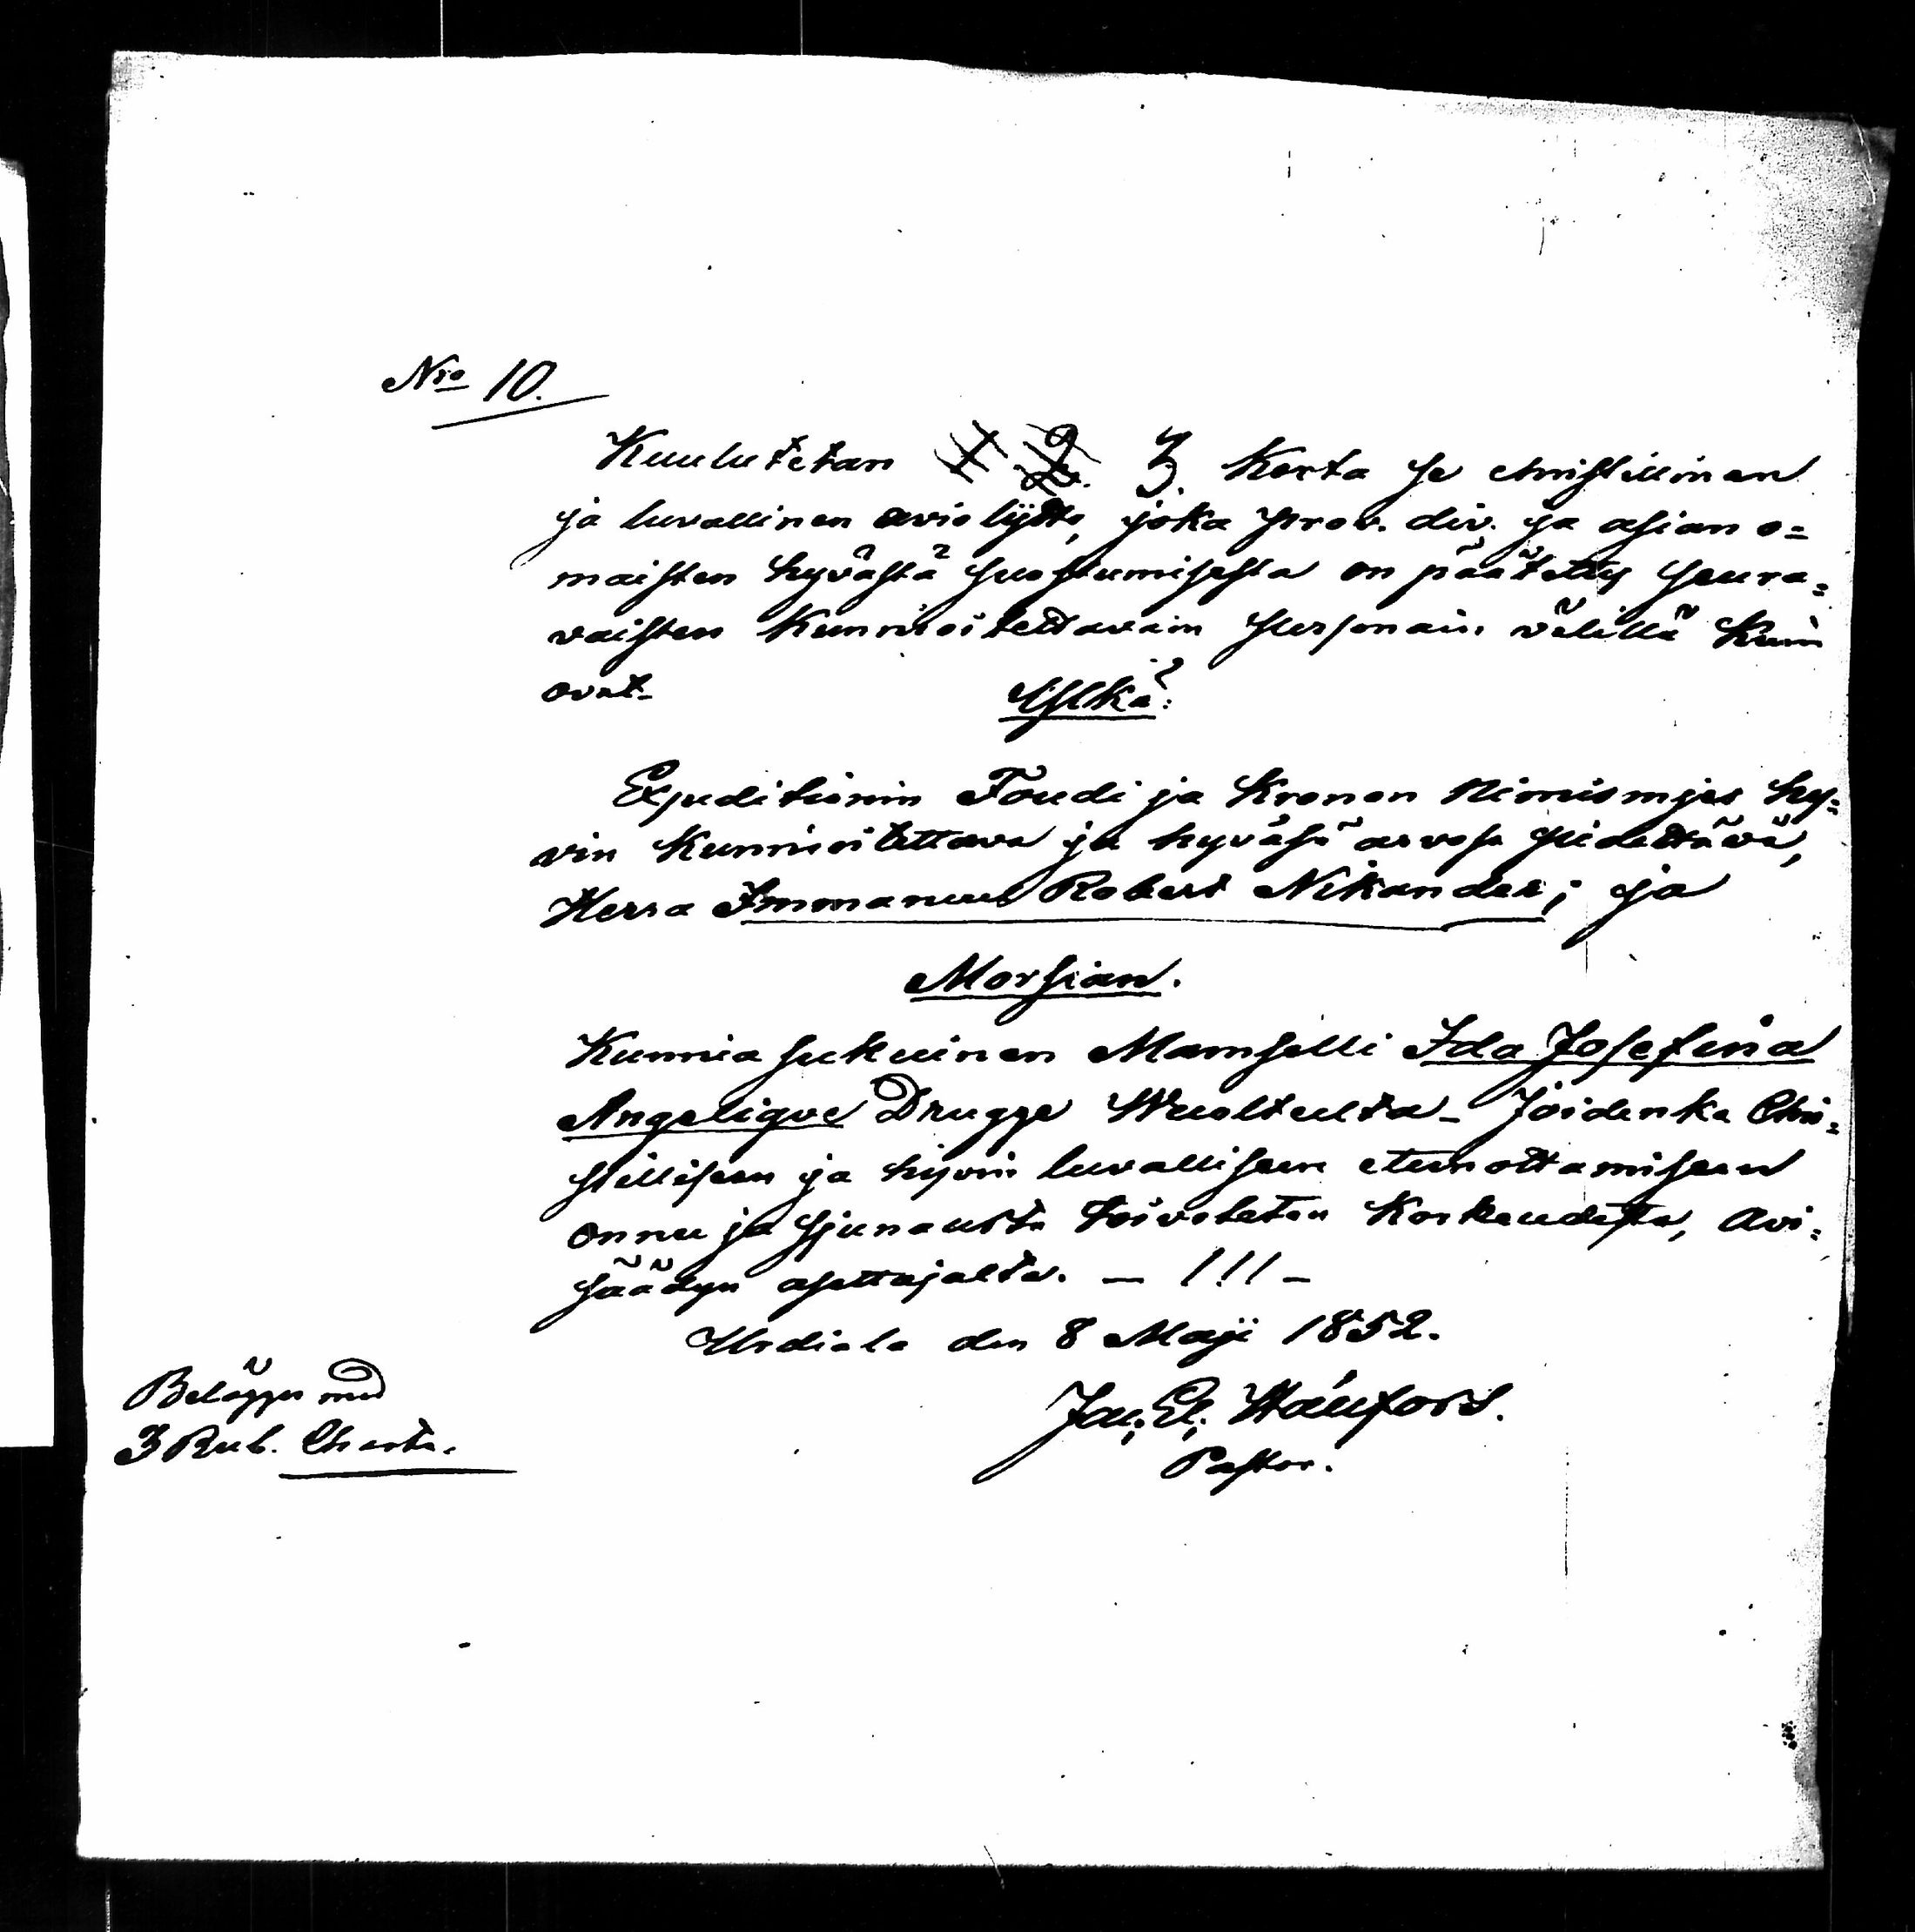 Nro 10.
Kuulutetan 1 2. 3. Kerta se christillinen
ja luvallinen avioliјtto, joka prov. div. ja asian o=
maisten hyvästä suostumisesta on päätetty seura=
vaisten Kunnioitettavain personain välillä kuin
ovat_
Ylkä:
Expeditionin Foudi ja Kronon Nimismjes hy=
vin Kunnioitettava ja hyväsä arvosa pidettävä,
Herra Immanuel Robert Nikander; ja
Morsian.
Kunnia sukuinen Mamselli Ida Josefina
Angelique Drugge Wuoltulta_ Joidenka Chri=
stillisen ja hyvin luvallisen etunottamiseen
onnu ja sjunausta toivoteton Korkeudesta, Avi=
säädyn asettajalta. — !!! —
Urdiala den 8 Maji 1852.
Belägges med
3 Rub. Charta.
Jac. El.
Pastor.